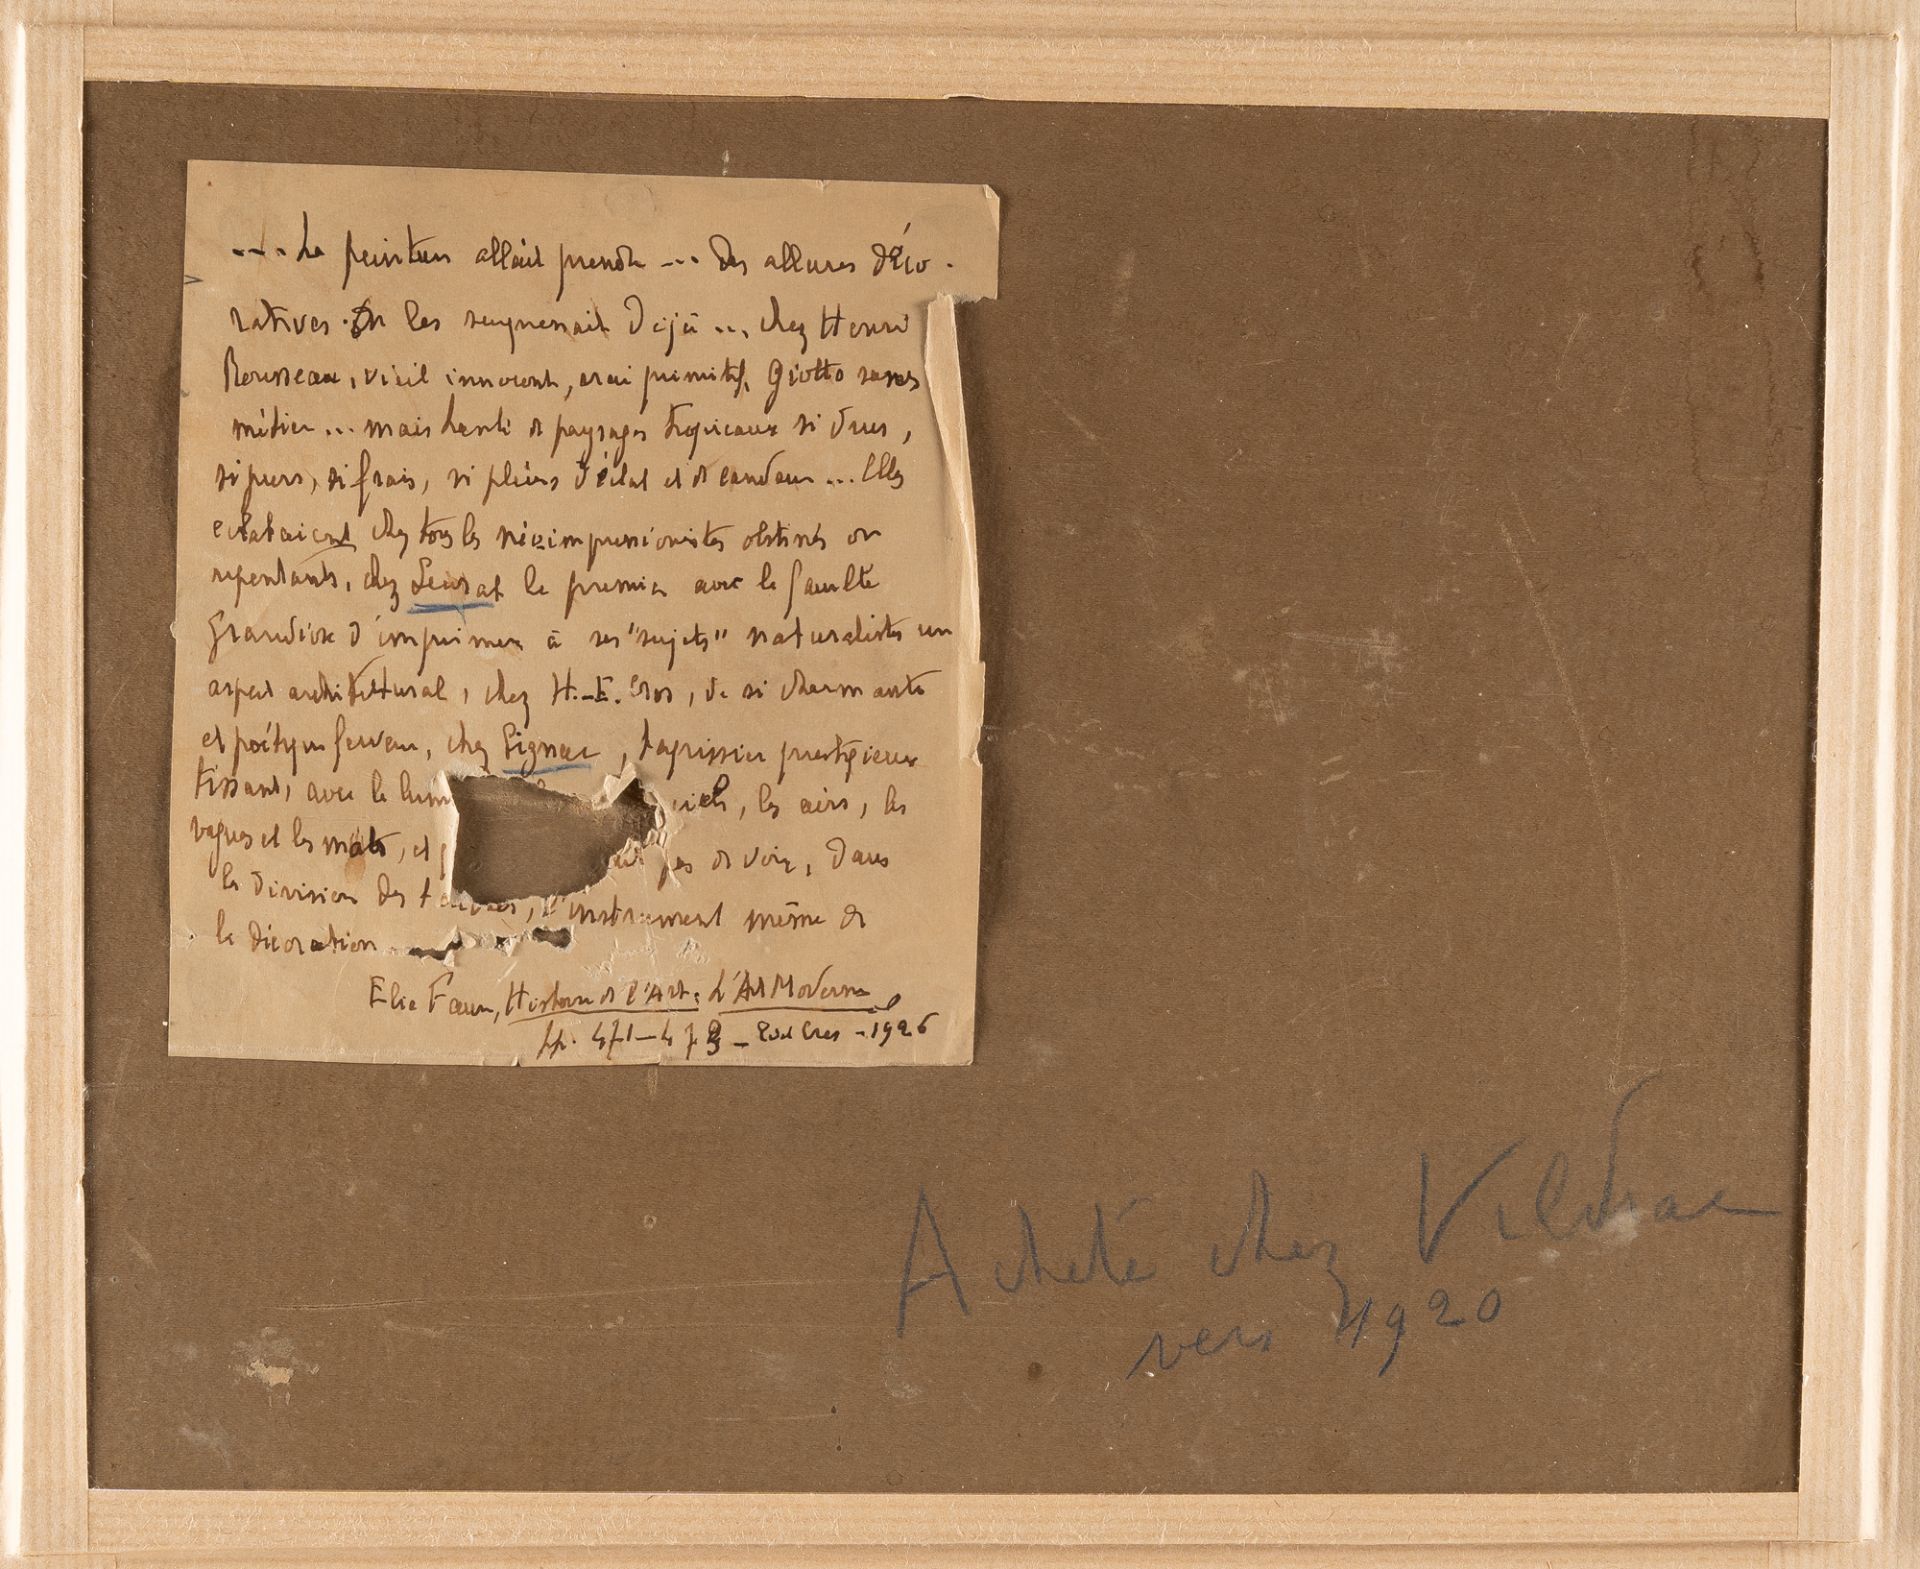 .... La peinture allait prendre ... des allures déco-
ratives. On les soupçonnait déjà ... chez Henri
Rousseau, vieil innocent, vrai primitif, Giotto sans
métier ... mais hanté de paysages tropicaux si drus,
si purs, si frais, si pleins d'éclat et de candeur ... Elles
éclataient chez tous les néo-impressionistes obstinés ou
repentants, chez Seurat le premier avec la faculté
grandiose d'imprimer à ses "sujets" naturalistes un
aspect architectural, chez H.-E. Cross, de si charmante
et poétique ferveur, chez Signac, tapissier prestigieux
tissant, avec la ciels, les airs, les
vagues et les mâts, et pas de voir, dans
la division des l'instrument même de
la décoration
Elie Faure, Histoire de l'Art, L'Art Moderne
pp. 471-473 - Ed Crès - 1926
Acheté chez Vildrac
vers 1920